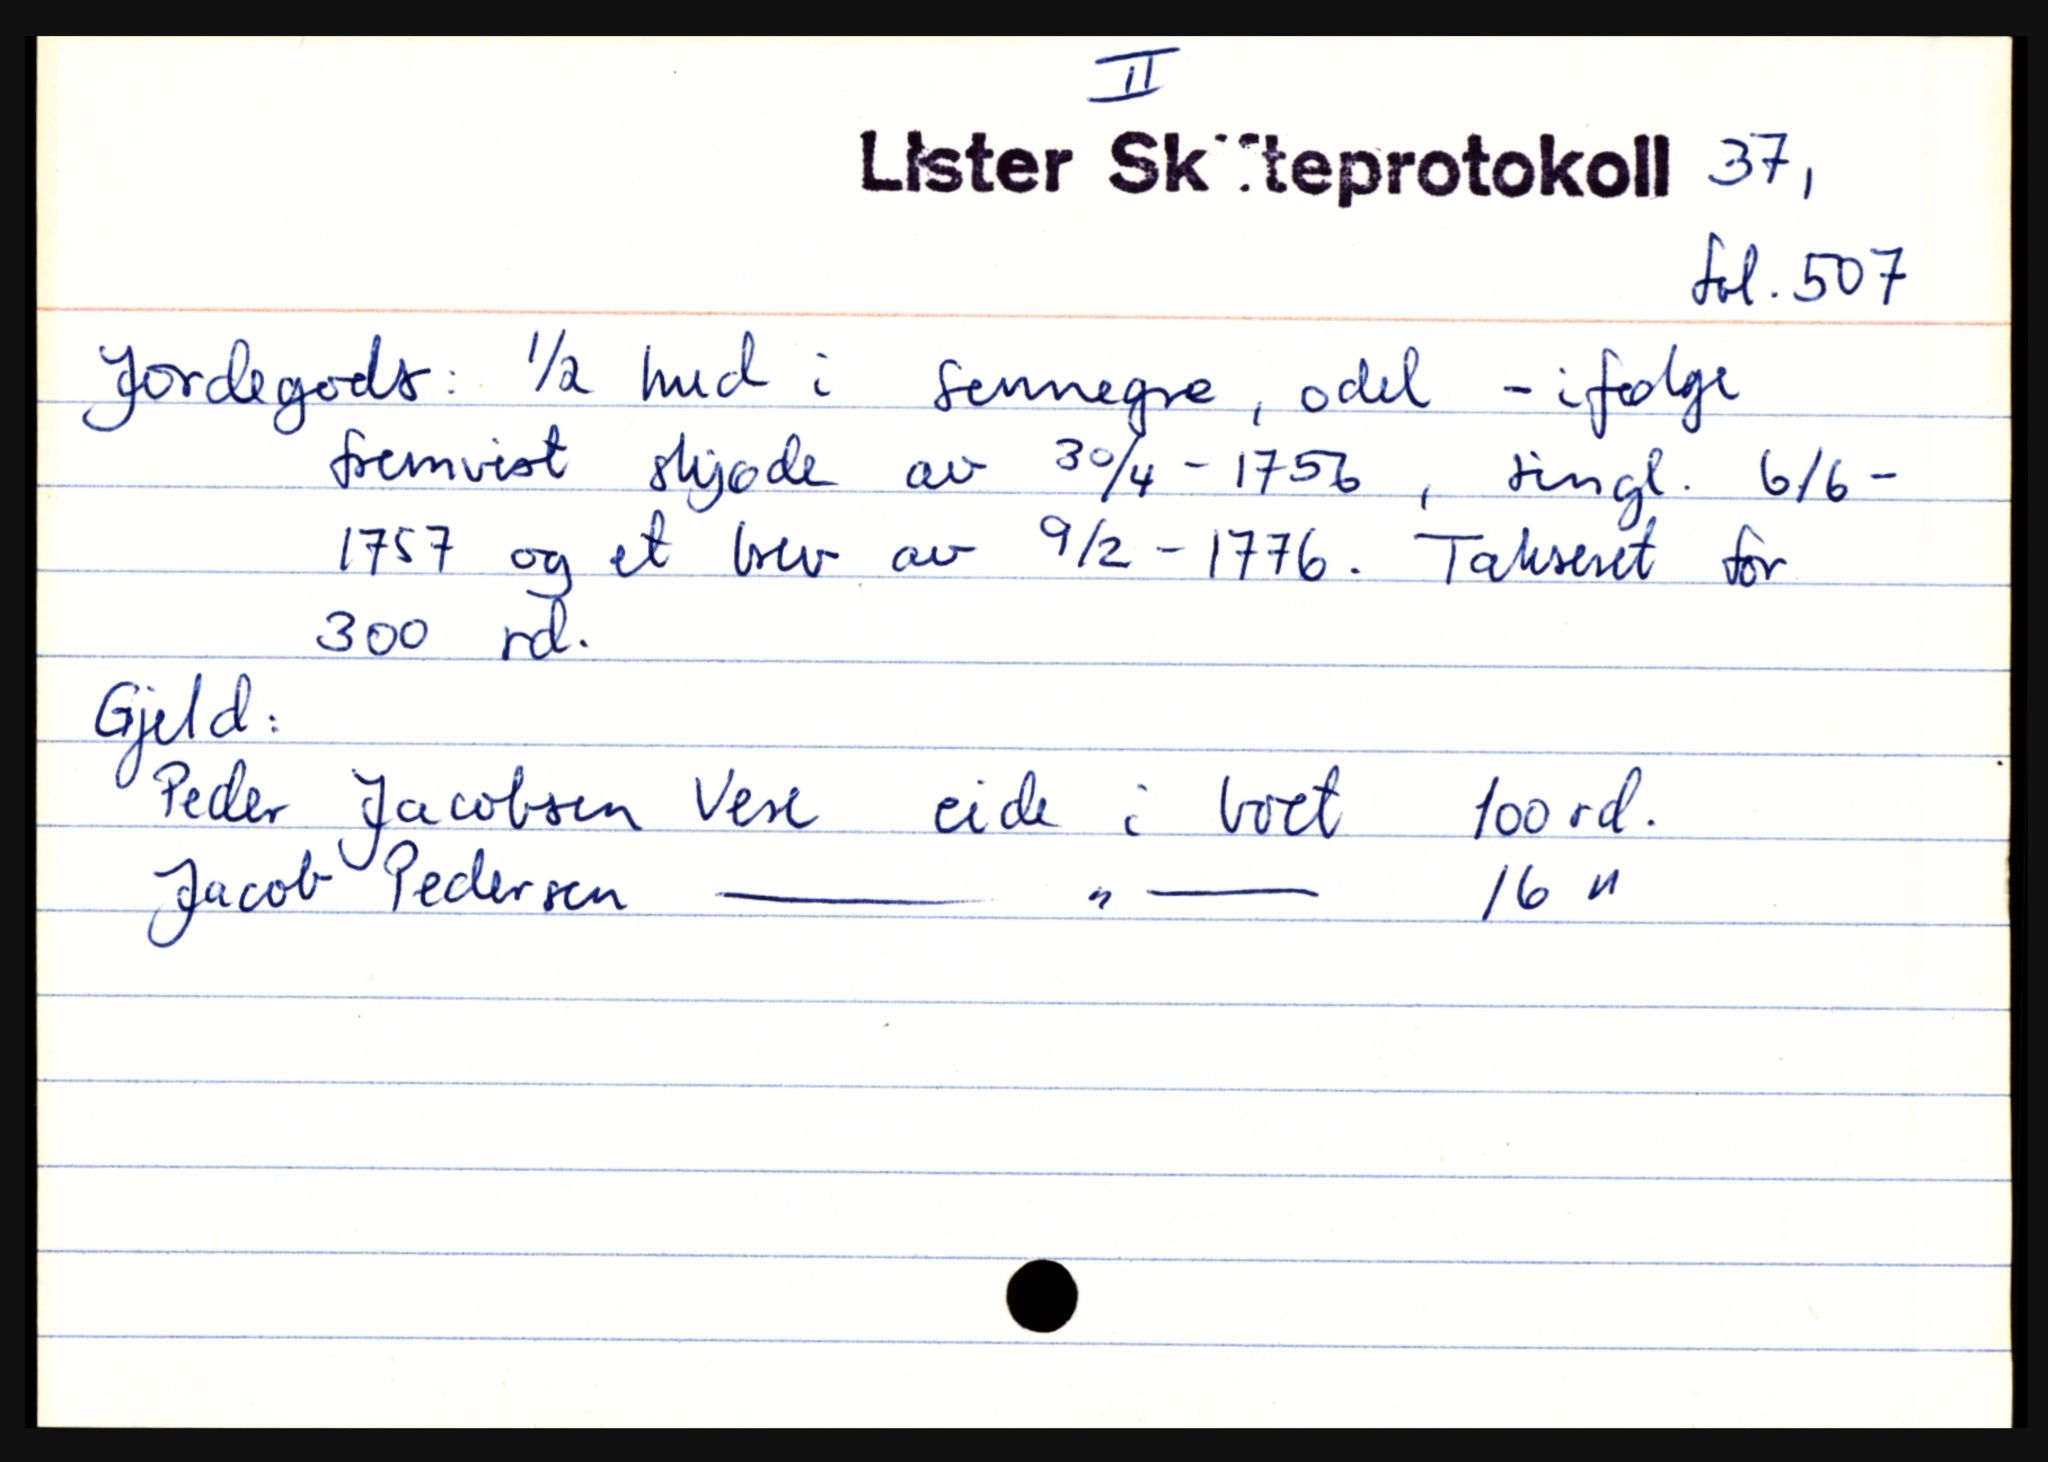 II
Lister Skifteprotokoll 37,
fol. 507
Jordegods: 1/2 hud i Sennegre, odel - ifølge
fremvist skjøde av 30/4 - 1756, tingl. 6/6 -
1757 og et brev av 9/2 - 1776. Takseret for
300 rd.
Gjeld:
Peder Jacobsen Vere eide i boet 100 rd.
Jacob Pedersen —— " —— 16 "